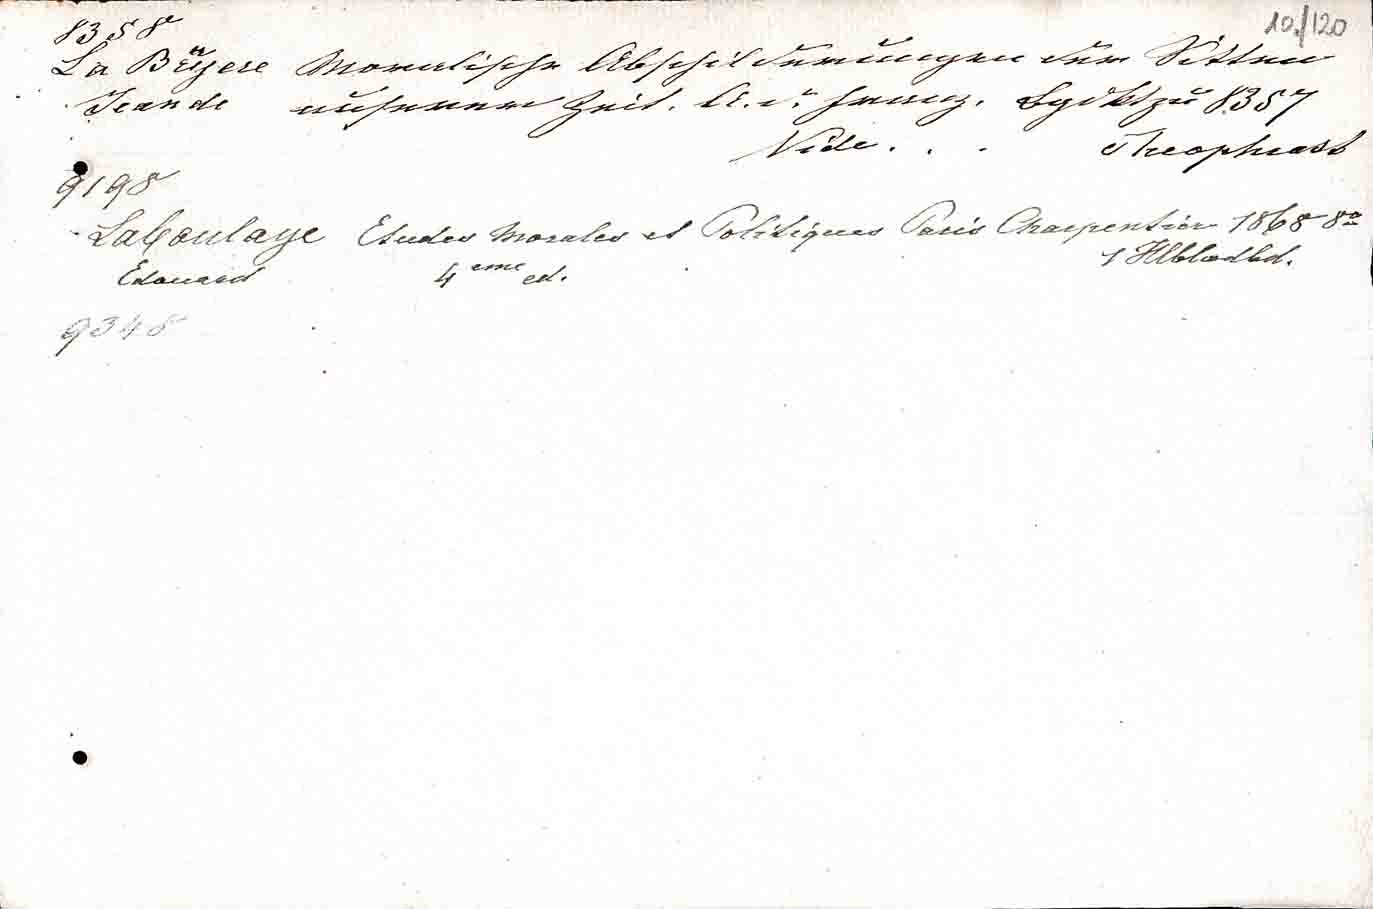 10./120
8358
La Brüyere Moralische Abschilderungen der Sitten
Jean de unserer Zeit. A. d. franz. bzu 8357
Vide . . . Theophrast
9198
Laboulaye Etudes Morales et Politiques Paris Charpentier 1868 8º
Edouard 4eme ed. 1 Hlblwdbd.
9348